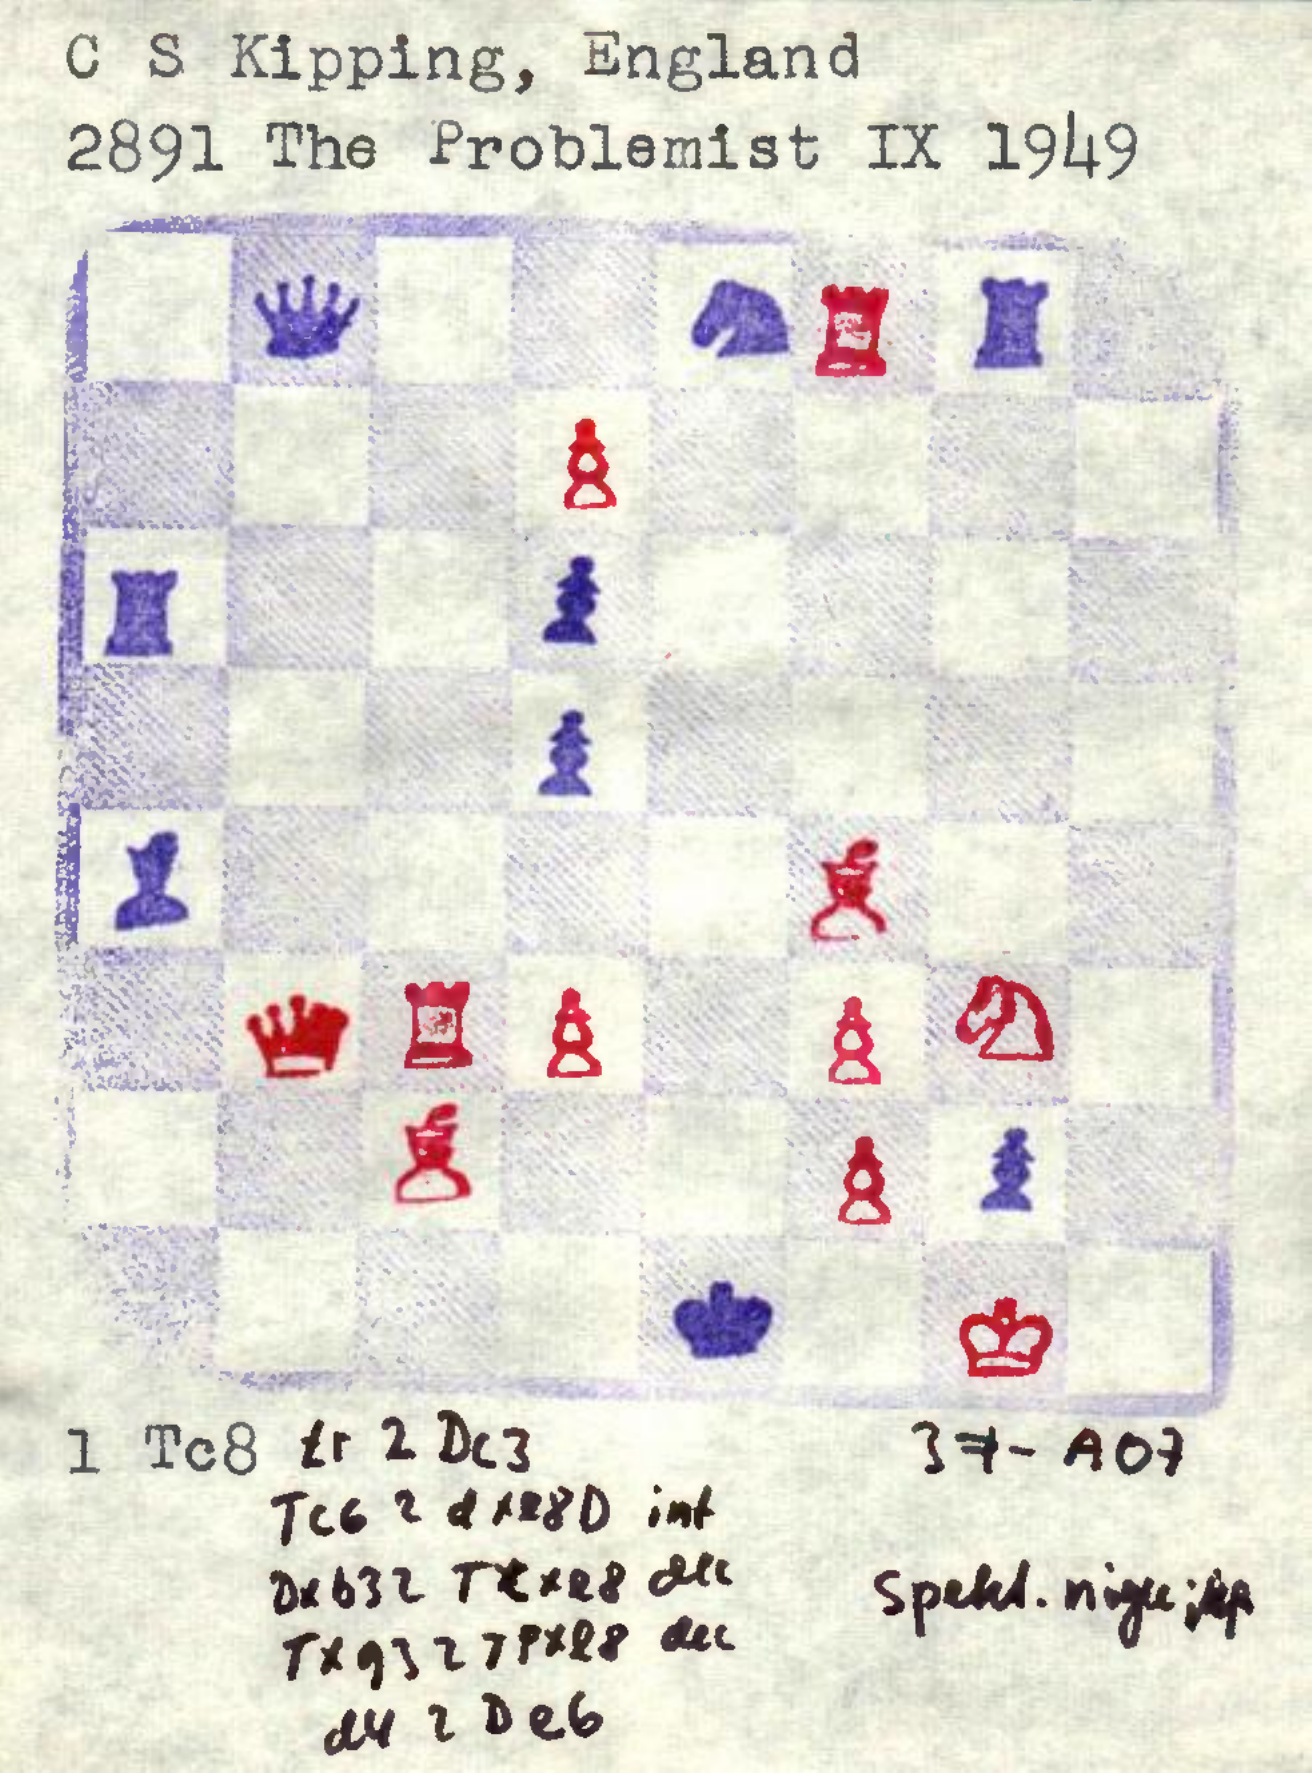 C S Kipping, England
2891 The Problemist IX 1949
1 Tc8 tr 2 Dc3
37- A07
Tc6 2 dxe8D int
Dxb3 2 Txe8 dec
Txg3 2 TPxe8 dec
d4 2 De6